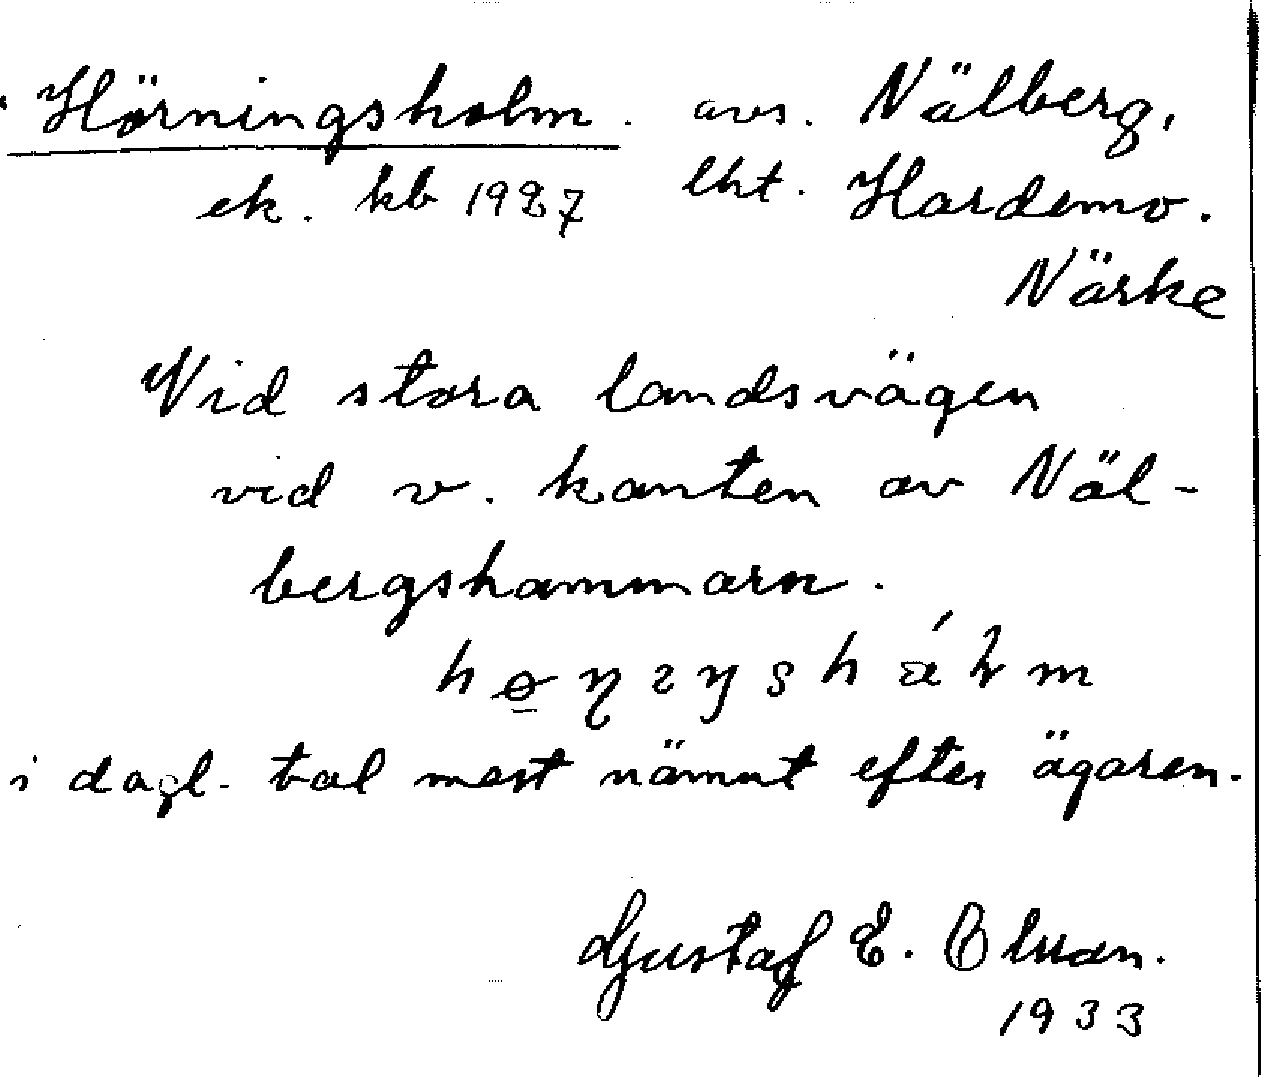 Hörningsholm. avs. Nälberg,
ek. kb 1927 lht. Hardemo.
Närke
Vid stora landsvägen
vid v. kanten av Näl-
bergshammarn.
i dagl. tal mest nämnt efter ägaren.
Gustaf E. Olsson.
1933